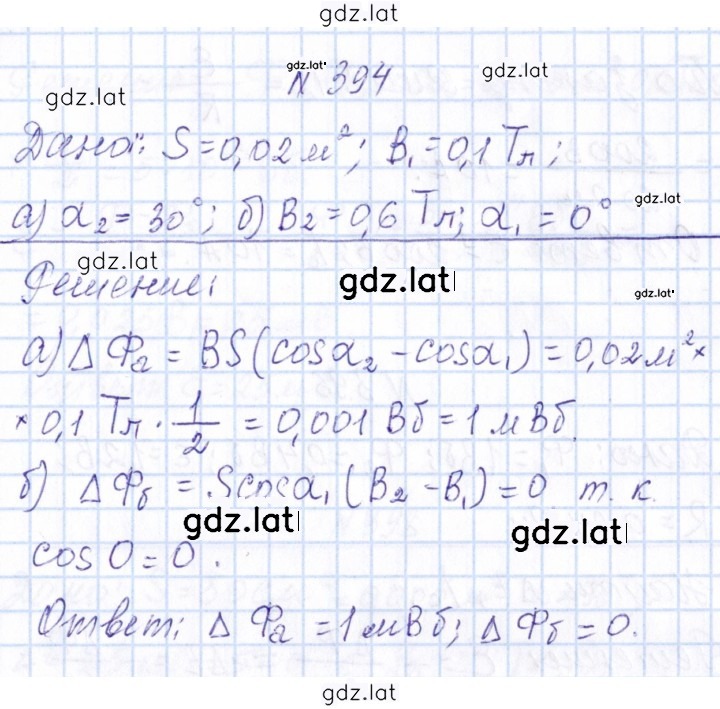 gdz.lat
gdz.lat
№ 394
gdz.lat
gdz.lat
Дано: S = 0,02 м²; B₁ = 0,1 Тл;
gdz.lat
а) α₂ = 30°; б) B₂ = 0,6 Тл; α₁ = 0°
gdz.lat
Решение:
gdz.lat
gdz.lat
а) Δ Фₐ = BS(cosα₂ - cosα₁) = 0,02 м² ×
× 0,1 Тл · 1/2 = 0,001 Вб = 1 мВб.
б) Δ Фб = S cosα₁ (B₂ - B₁) = 0 т. к.
gdz.lat
gdz.lat
cos 0 = 0.
Ответ: Δ Фₐ = 1 мВб; Δ Фб = 0.
gdz.lat